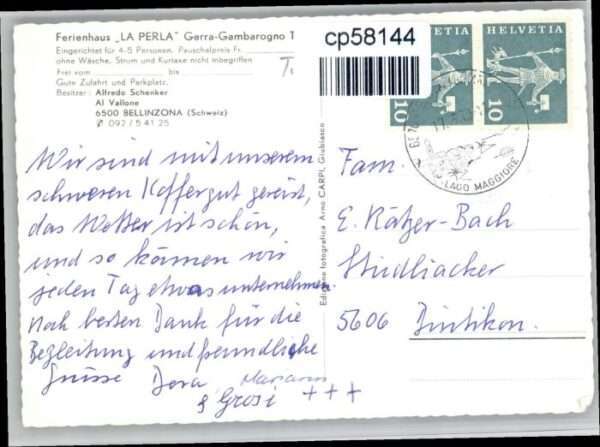 Ferienhaus „LA PERLA" Gerra-Gambarogno T
Eingerichtet für 4-5 Personen. Pauschalpreis Fr.
ohne Wäsche, Strom und Kurtaxe nicht inbegriffen
Frei vom bis
Gute Zufahrt und Parkplatz.
Besitzer: Alfredo Schenker
Al Vallone
6500 BELLINZONA (Schweiz)
✆ 092 / 5 41 25
cp58144
HELVETIA HELVETIA
10 10
LAGO MAGGIORE
Wir sind mit unserem
schweren Koffergut gereist,
das Wetter ist schön,
und so können wir
jeden Tag etwas unternehmen.
Noch besten Dank für die
Begleitung und freundliche
Grüsse Dora Mariann
& Grosi +++
Edizione fotografica Arno CARPI, Giubiasco
Fam.
E. Kätzer-Bach
Stüdliacker
5606 Dintikon.